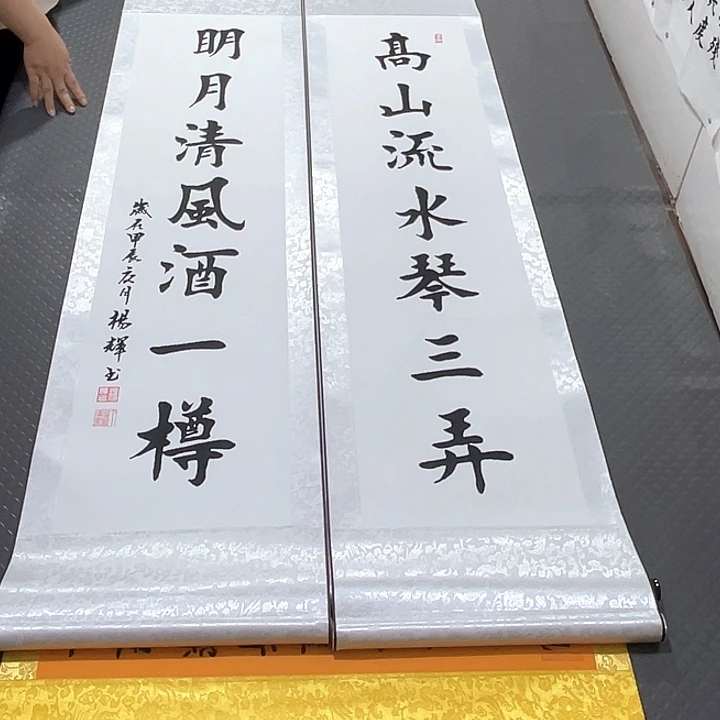 高山流水琴三弄
明月清風酒一樽
歲在甲辰夏月楊輝书